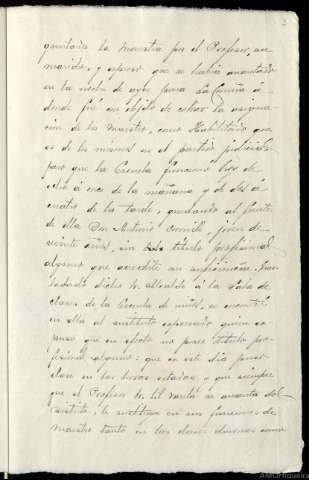 3
guntada la Maestra por el Profesor, su
marido, y expuso que se habia ausentado
en la noche de ayer para La Coruña á
donde fué en objeto de cobrar la asigna-
cion de los Maestros, como Habilitado que
es de los mismos en el partido judicial,
pero que la Escuela funciono hoy de
ocho á once de la mañana y de dos á
cuatro de la tarde, quedando al frente
de ella Don Antonio joven de
veinte años, sin titulo profesional
alguno que acredite su suficiencia. Tras
ladado dicho Sr. Alcalde á la Sala de
clases de la Escuela de niños, se encontró
en ella al sustituto expresado quien ex-
puso que en efecto no posee titulo pro-
fesional alguno: que en este dia puso
clase en las horas citadas y que siempre
que el Profesor Sr. Gil Varela se ausenta del
distrito, le sustituye en sus funciones de
maestro tanto en las clases diurnas como
AMOrtigueira